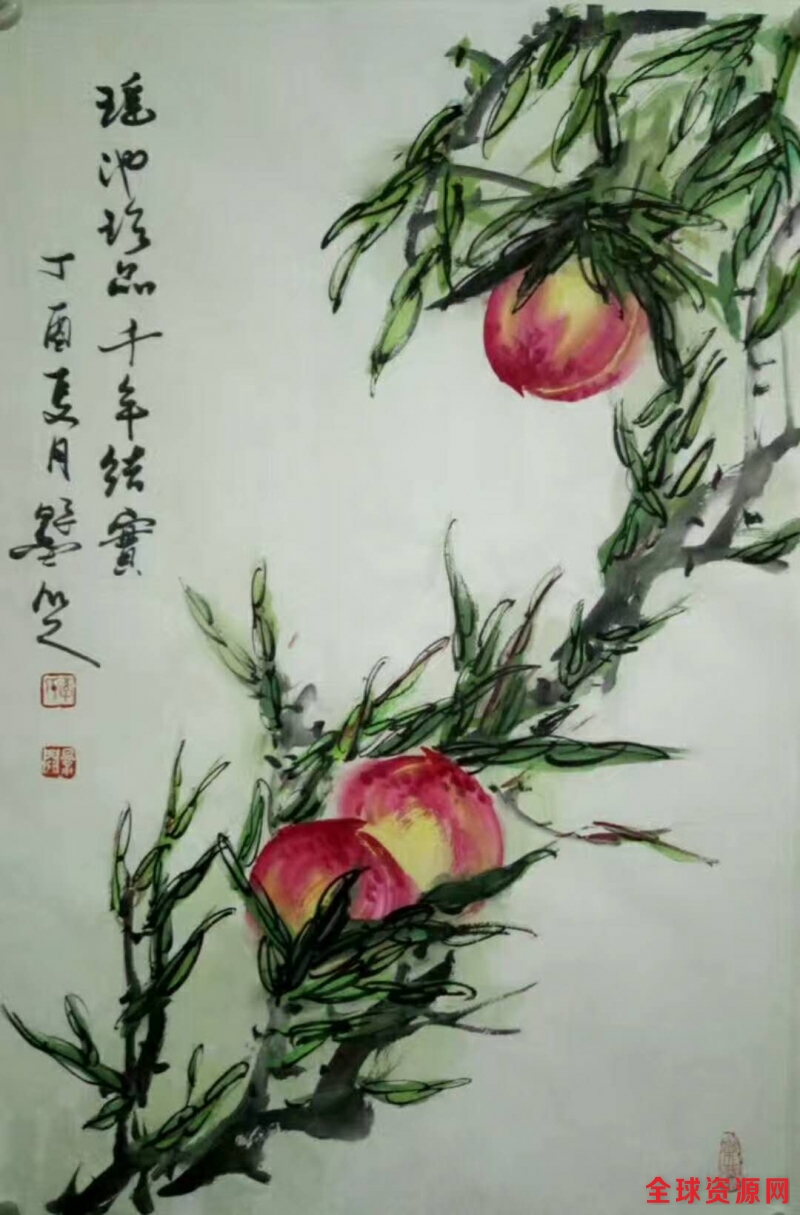 瑶池珍品千年结實
丁酉夏月
全球资源网